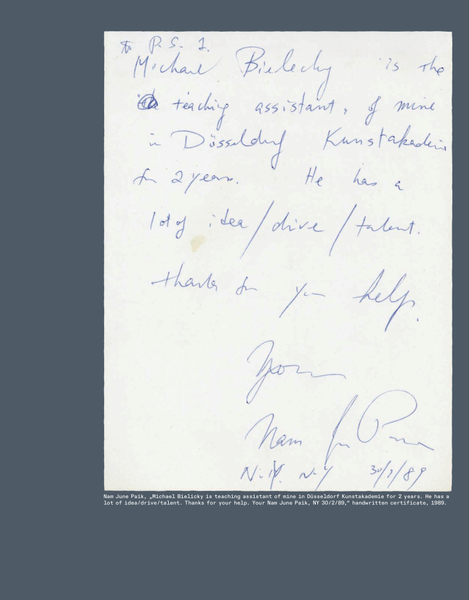 to P.S. 1.
Michael Bielicky is the
teaching assistant, of mine
in Düsseldorf Kunstakademie
for 2 years. He has a
lot of idea/drive/talent.
thanks for your help.
Your
Nam June Paik
N.Y. N.Y 30/2/89
Nam June Paik, „Michael Bielicky is teaching assistant of mine in Düsseldorf Kunstakademie for 2 years. He has a
lot of idea/drive/talent. Thanks for your help. Your Nam June Paik, NY 30/2/89," handwritten certificate, 1989.